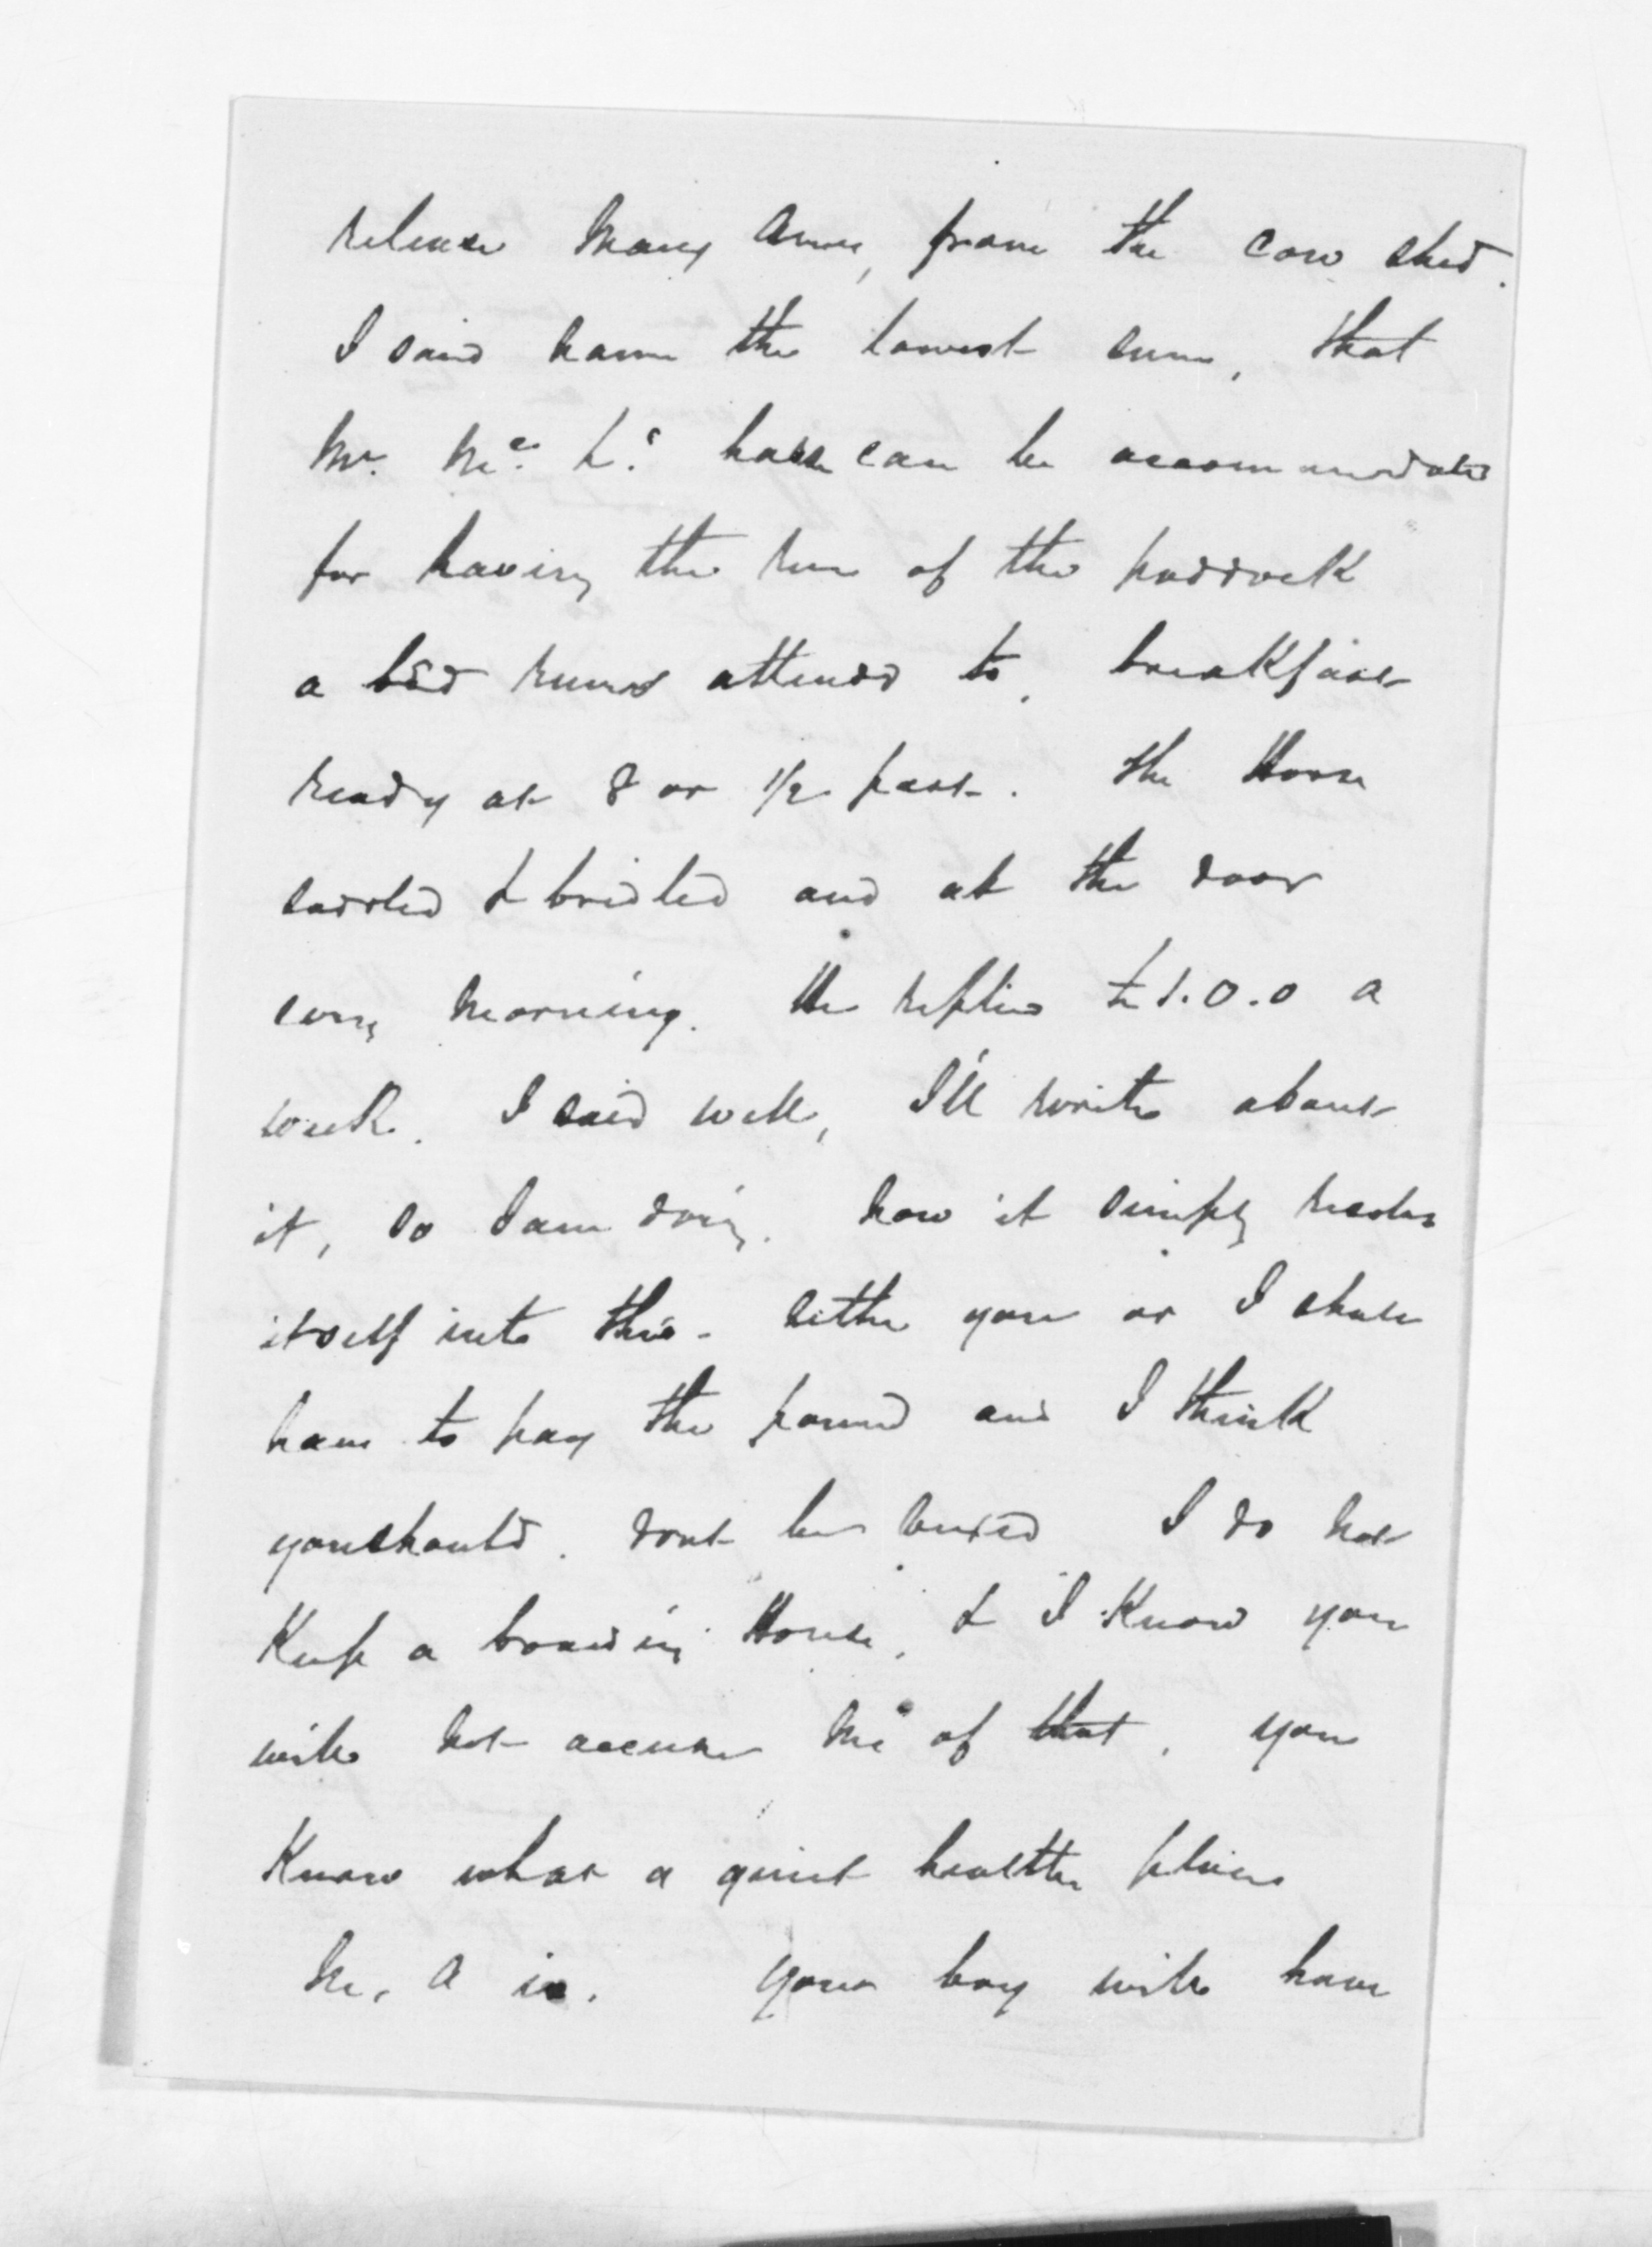 release Mary Anne, from the cow shed.
I said name the lowest sum, that
Mr. Mc. L's horse can be accommodated
for having the run of the paddock
a bed room attended to, breakfast
ready at 8 or 1/2 past. the Horse
saddled & bridled and at the door
every morning. He replied £1.0.0 a
week. I said well, I'll write about
it, so I am doing. now it simply resolves
itself into this - either you or I shall
have to pay the pound and I think
you should. dont be
I do not
Keep a boarding House, & I Know you
will not accuse me of that. you
Know what a quiet healthy place
Mr. A is. your boy will have